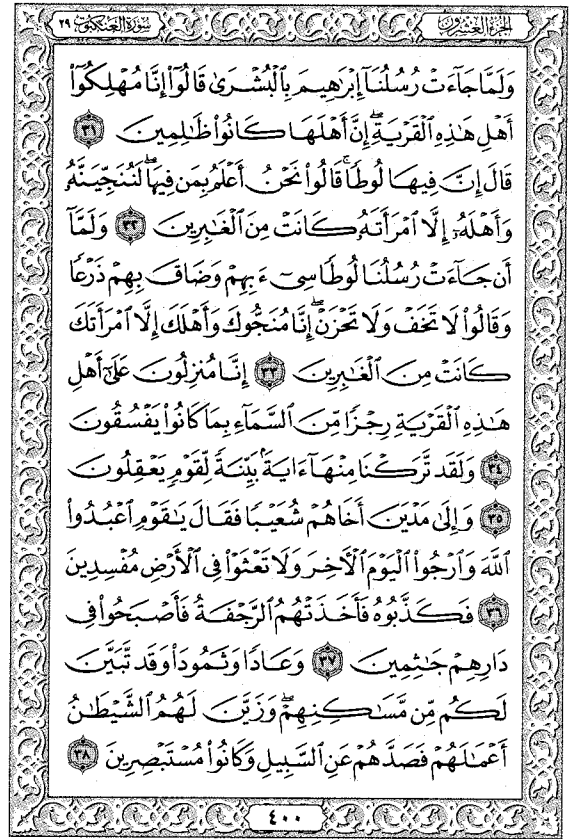 الجزء العشرون
سورة العنكبوت ٢٩
وَلَمَّا جَآءَتۡ رُسُلُنَآ إِبۡرَٰهِيمَ بِٱلۡبُشۡرَىٰ قَالُوٓاْ إِنَّا مُهۡلِكُوٓاْ
أَهۡلِ هَٰذِهِ ٱلۡقَرۡيَةِۖ إِنَّ أَهۡلَهَا كَانُواْ ظَٰلِمِينَ ٣١
قَالَ إِنَّ فِيهَا لُوطٗاۚ قَالُواْ نَحۡنُ أَعۡلَمُ بِمَن فِيهَاۖ لَنُنَجِّيَنَّهُۥ
وَأَهۡلَهُۥٓ إِلَّا ٱمۡرَأَتَهُۥ كَانَتۡ مِنَ ٱلۡغَٰبِرِينَ ٣٢ وَلَمَّآ
أَن جَآءَتۡ رُسُلُنَا لُوطٗا سِيٓءَ بِهِمۡ وَضَاقَ بِهِمۡ ذَرۡعٗا
وَقَالُواْ لَا تَخَفۡ وَلَا تَحۡزَنۡ إِنَّا مُنَجُّوكَ وَأَهۡلَكَ إِلَّا ٱمۡرَأَتَكَ
كَانَتۡ مِنَ ٱلۡغَٰبِرِينَ ٣٣ إِنَّا مُنزِلُونَ عَلَىٰٓ أَهۡلِ
هَٰذِهِ ٱلۡقَرۡيَةِ رِجۡزٗا مِّنَ ٱلسَّمَآءِ بِمَا كَانُواْ يَفۡسُقُونَ
٣٤ وَلَقَد تَّرَكۡنَا مِنۡهَآ ءَايَةَۢ بَيِّنَةٗ لِّقَوۡمٖ يَعۡقِلُونَ
٣٥ وَإِلَىٰ مَدۡيَنَ أَخَاهُمۡ شُعَيۡبٗا فَقَالَ يَٰقَوۡمِ ٱعۡبُدُواْ
ٱللَّهَ وَٱرۡجُواْ ٱلۡيَوۡمَ ٱلۡأٓخِرَ وَلَا تَعۡثَوۡاْ فِي ٱلۡأَرۡضِ مُفۡسِدِينَ
٣٦ فَكَذَّبُوهُ فَأَخَذَتۡهُمُ ٱلرَّجۡفَةُ فَأَصۡبَحُواْ فِي
دَارِهِمۡ جَٰثِمِينَ ٣٧ وَعَادٗا وَثَمُودَاْ وَقَد تَّبَيَّنَ
لَكُم مِّن مَّسَٰكِنِهِمۡۖ وَزَيَّنَ لَهُمُ ٱلشَّيۡطَٰنُ
أَعۡمَٰلَهُمۡ فَصَدَّهُمۡ عَنِ ٱلسَّبِيلِ وَكَانُواْ مُسۡتَبۡصِرِينَ ٣٨
٤٠٠